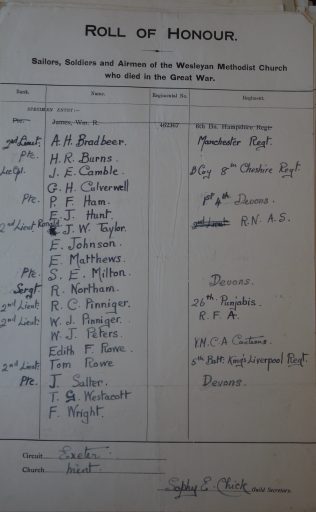 ROLL OF HONOUR.
Sailors, Soldiers and Airmen of the Wesleyan Methodist Church
who died in the Great War.
Rank. Name. Regimental No. Regiment.
SPECIMEN ENTRY:—
Pte. James, Wm. R. 462367 6th Bn. Hampshire Regt
2nd Lieut. A. H. Bradbeer Manchester Regt.
Pte. H. R. Burns.
J. E. Camble D Coy 8th Cheshire Regt.
G. H. Colverwell
Pte. P. F. Ham. 4th Devons.
E. J. Hunt. R.N.A.S.
2nd Lieut. Ronald J. W. Taylor.
E. Johnson.
E. Matthews.
Pte. S. E. Milton.
Sergt R. Northam. Devons.
2nd Lieut. R. C. Pinniger. 26th Punjabis.
2nd Lieut. W. J. Pinniger. R. F. A.
W. J. Peters.
Edith F. Rowe. Y.M.C.A Canteens.
2nd Lieut. Tom Rowe 5th Batt. King's Liverpool Regt.
Pte. J. Salter. Devons.
T. G. Westacott
F. Wright.
Circuit Exeter
Church Mint.
Sophy E. Chick Guild Secretary.